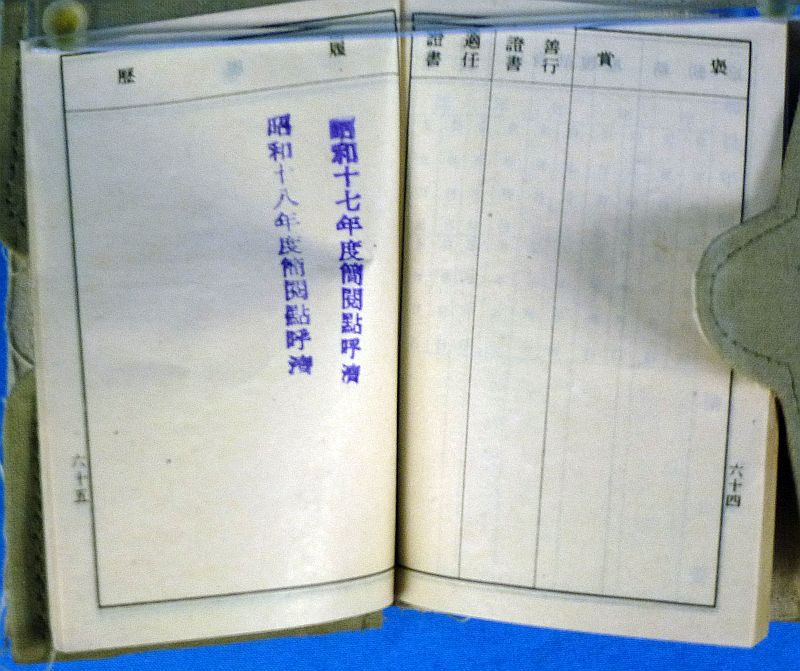 褒賞
善行證書
適任證書
六十四
履歷
昭和十七年度簡閲點呼濟
昭和十八年度簡閲點呼濟
六十五